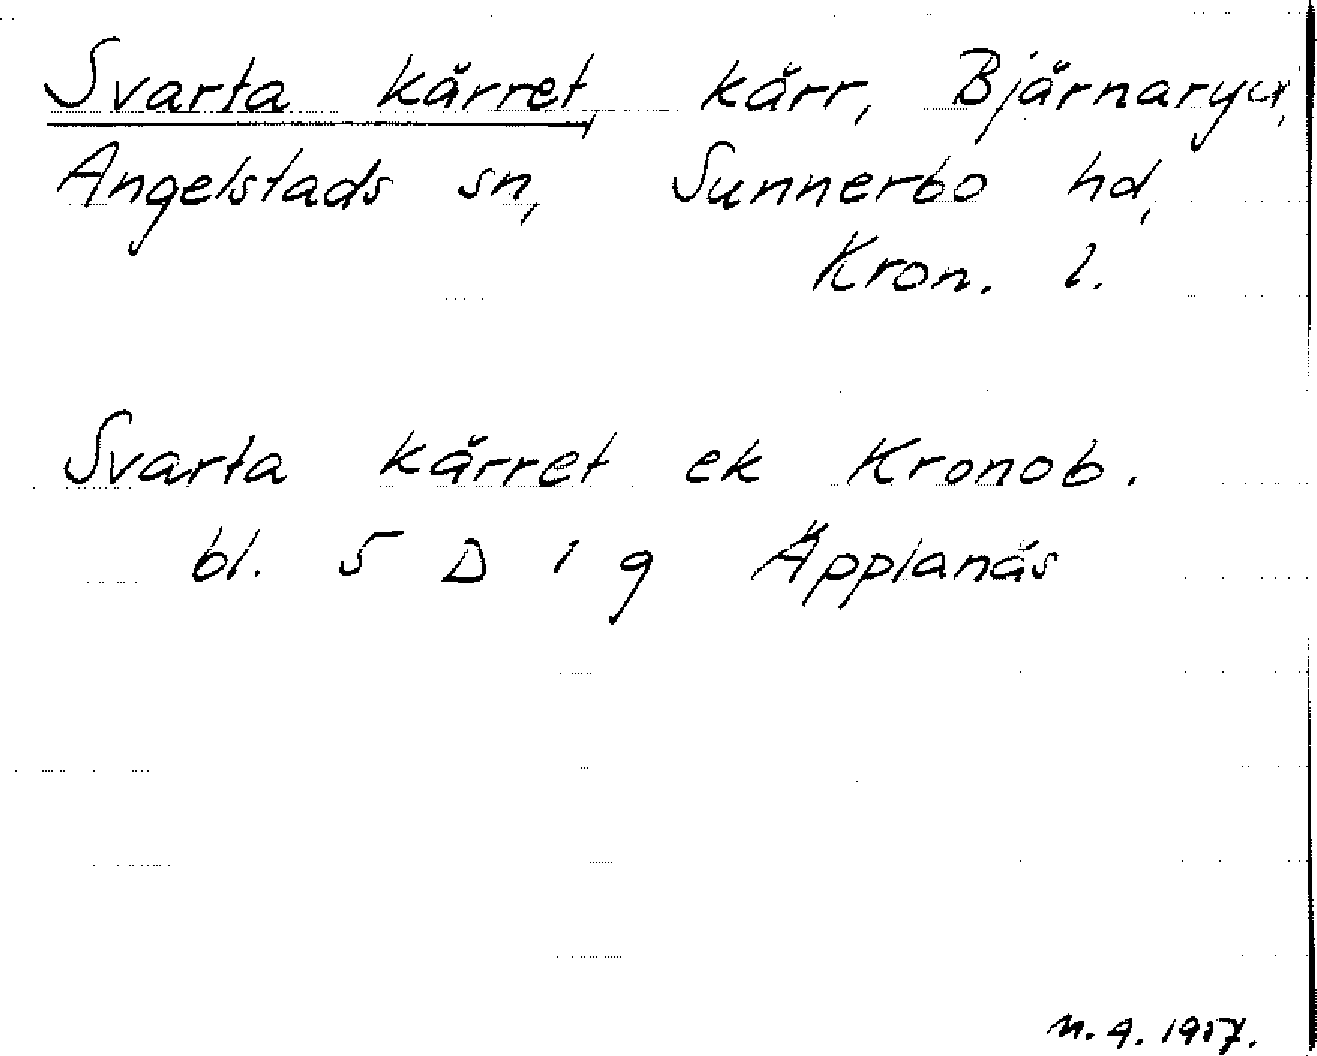 Svarta kärret, kärr, Bjärnaryd,
Angelstads sn, Sunnerbo hd,
Kron. l.
Svarta kärret ek Kronob.
bl. 5 D 1 g Äpplanäs
n.q. 1957.